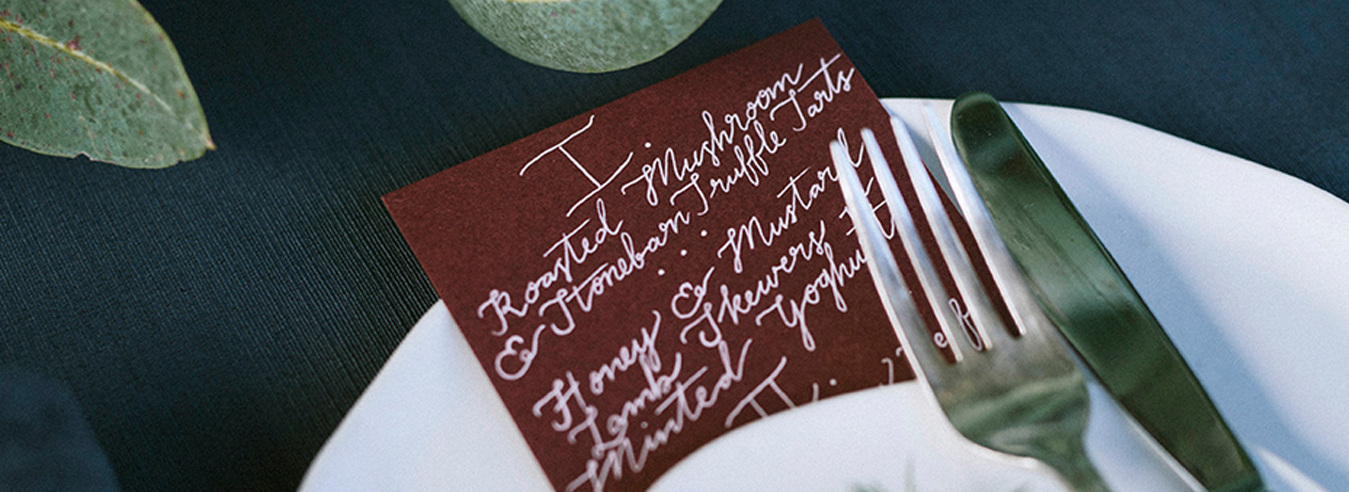 I.
Roasted Mushroom
& Stonebarn Truffle Tarts
. . .
Honey & Mustard
Lamb Skewers
Minted Yoghurt